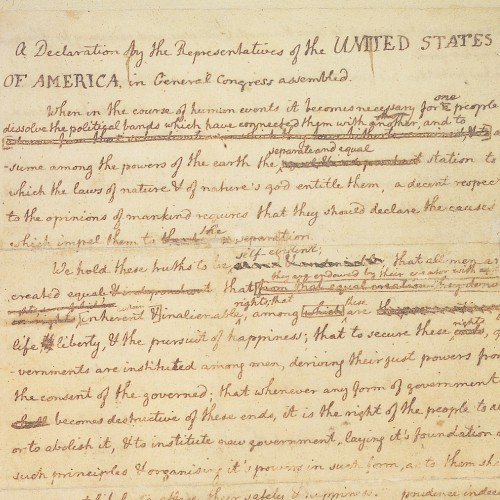 A Declaration by the Representatives of the UNITED STATES
OF AMERICA, in General Congress assembled.
When in the course of human events it becomes necessary for one people
dissolve the political bands which have connected them with another, and to
separate and equal
sume among the powers of the earth the station to
which the laws of nature & of nature's god entitle them, a decent respec
to the opinions of mankind requires that they should declare the causes
which impel them to the separation.
self-evident;
We hold these truths to be that all men ar
they are endowed by their creator with
created equal & independant that from that equal creation they deriv
rights; that these
inherent & inalienable, among which are the
life & liberty, & the pursuit of happiness; that to secure these ends, rights
vernments are instituted among men, deriving their just powers from
the consent of the governed; that whenever any form of government
shall becomes destructive of these ends, it is the right of the people to al
or to abolish it, & to institute new government, laying it's foundation o
such principles & organising it's powers in such form, as to them sh
their safety & happiness. prudence indeed